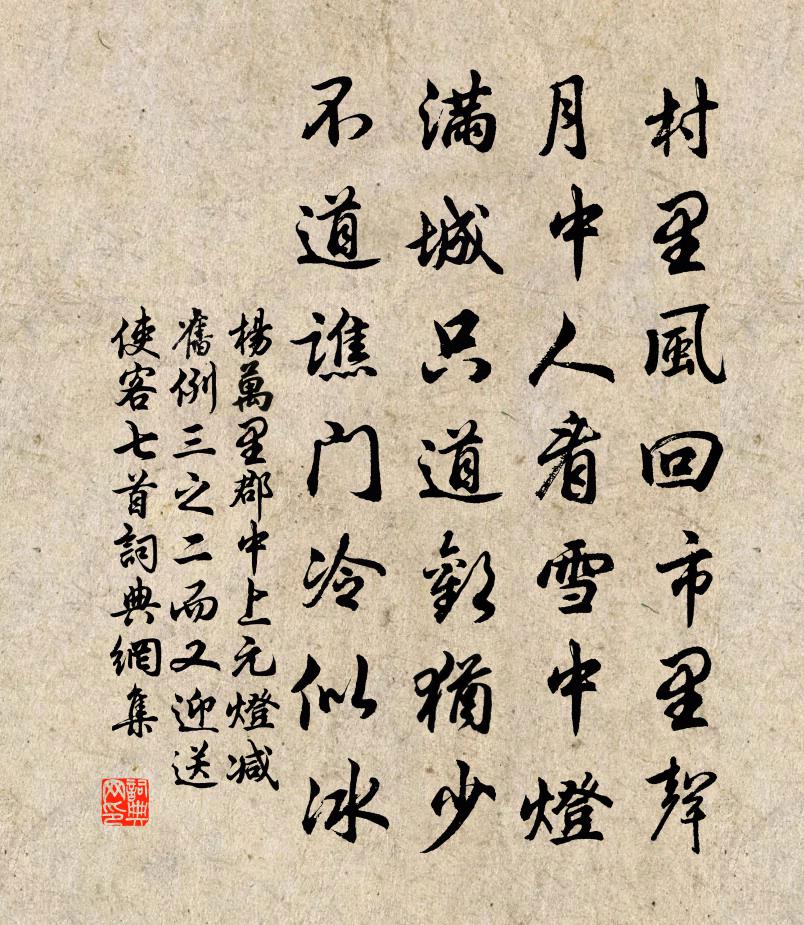 村里風回市里聲
月中人看雪中燈
滿城只道歡猶少
不道譙門冷似冰
楊萬里郡中上元燈减
舊例三之二而又迎送
使客七首詞典網集
詞典
网印